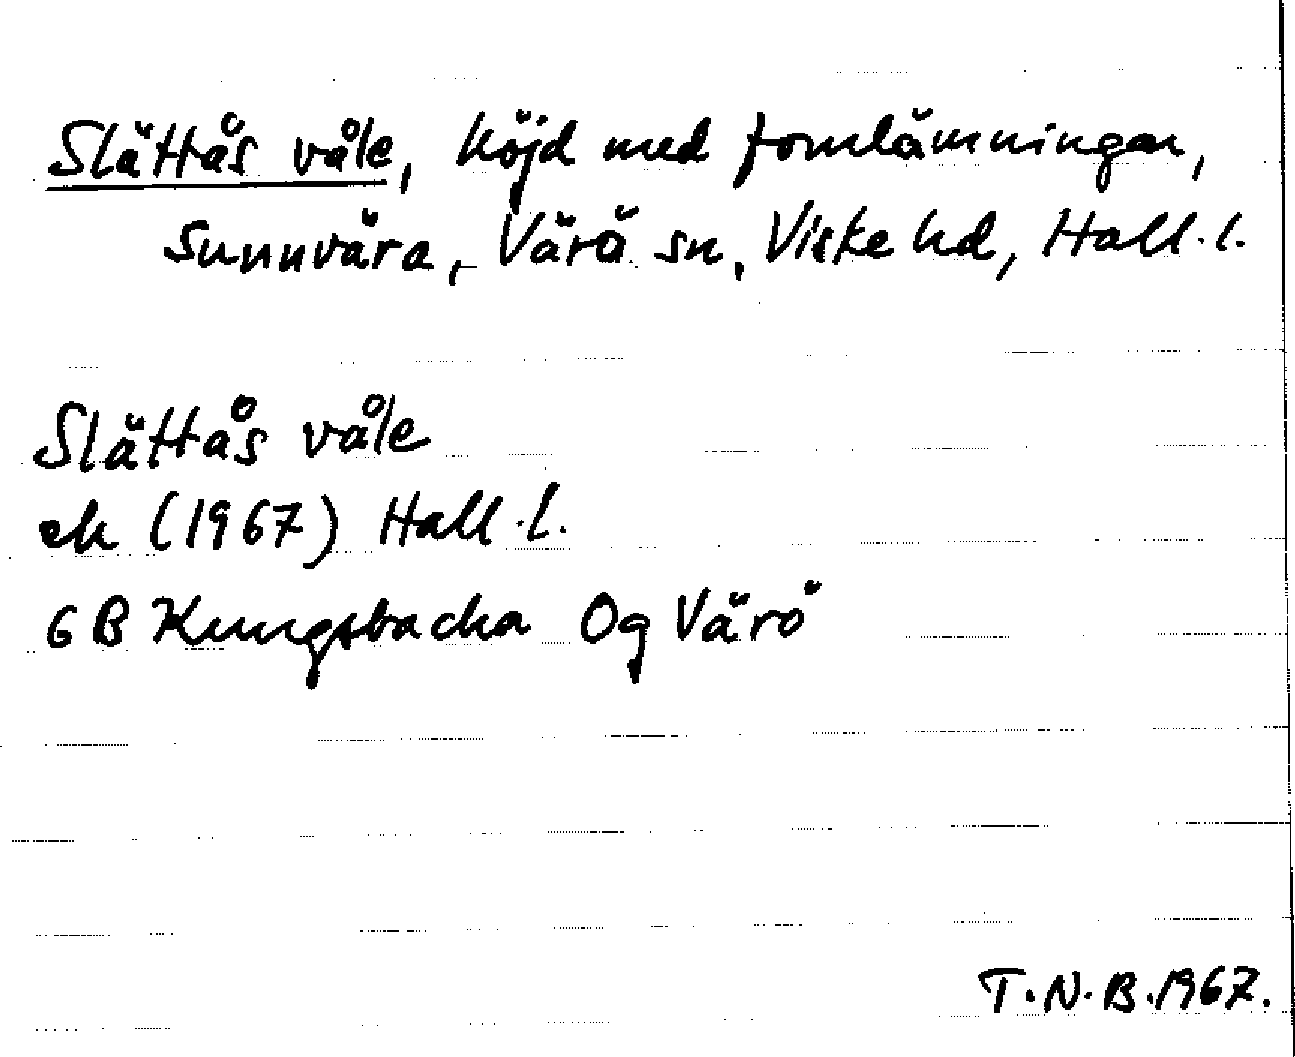 Slättås våle, höjd med fornlämningar,
Sunnvära, Värö sn, Viske hd, Hall.l.
Slättås våle
ek (1967) Hall.l.
6 B Kungsbacka 0g Värö
T.N.B.1967.